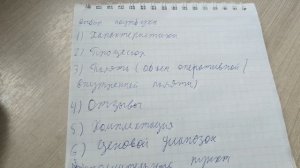 1) Характеристики
2) Процессор
3) Память (объем оперативной /
внутренней памяти)
4) Отзывы
5) Комплектация
6) Ценовой диапазон
пункт